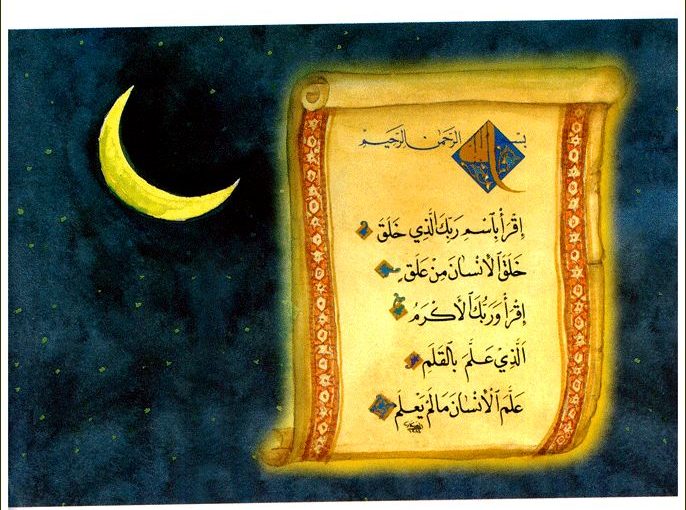 بسم الله الرحمن الرحيم
اِقْرَأْ بِٱسْمِ رَبِّكَ الَّذِي خَلَقَ
خَلَقَ ٱلْاِنْسَانَ مِنْ عَلَقٍ
اِقْرَأْ وَرَبُّكَ ٱلْاَكْرَمُ
اَلَّذِيْ عَلَّمَ بِالْقَلَمِ
عَلَّمَ ٱلْاِنْسَانَ مَالَمْ يَعْلَمْ